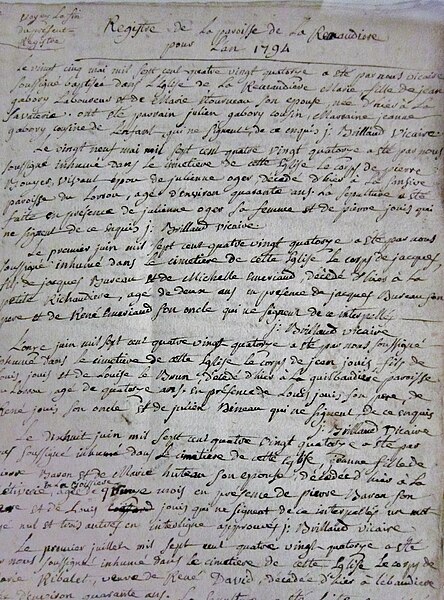 Voyez la fin
du présent
Registre
Registre de la paroisse de la Renaudiere
pour Lan 1794
Le vingt cinq mai mil sept cent quatre vingt quatorze a été par nous vicaire
soussigné baptisée dans l'Eglise de la Renaudiere Marie fille de jean
gabory Laboureur et de Marie Mourneau son epouse née d'hier à la
ont été parrain julien gabory cousin Marraine jeanne
gabory cousine de l'enfant qui ne signent de ce enquis j: Brillaud Vicaire
Le vingt neuf mai mil sept cent quatre vingt quatorze a été par nous
soussigné inhumé dans le cimetiere de cette Eglise le corps de pierre
vivant époux de julienne oger décédé d'hier à la
paroisse du agé d'environ quarante ans la sepulture a été
faite en presence de julienne oger sa femme et de pierre jouis qui
ne signent de ce enquis j: Brillaud vicaire
Le premier juin mil sept cent quatre vingt quatorze a été par nous
soussigné inhumé dans le cimetiere de cette Eglise le corps de jacques
fils de jacques Bureau et de Michelle Emeriaud, décédé d'hier à la
petite Richaudiere, age de deux ans en presence de jacques Bureau son
pere et de René Emeriaud son oncle qui ne signent de ce interpellés
j: Brillaud vicaire
Lonze juin mil sept cent quatre vingt quatorze a été par nous soussigné
inhumé dans le cimetiere de cette Eglise le corps de jean jouis fils de
Louis jouis et de Louise le Brun, décédé d'hier à la paroisse
agé de quatorze ans en presence de Louis jouis son pere, de
René jouis son oncle et de julien Bineau qui ne signent de ce enquis
j: Brillaud vicaire
Le dixhuit juin mil sept cent quatre vingt quatorze a été par
nous soussigné inhumé dans le cimetiere de cette Eglise, jeanne fille de
pierre Baron et de Marie huteau son epouse, décédée d'hier à la
agée de mois en presence de pierre Baron son
pere et de Louis jouis qui ne signent de ce interpellés un mot
rayé nul et tous autres en interligne approuvés j: Brillaud vicaire
Le premier juillet mil sept cent quatre vingt quatorze a été
par nous soussigné inhumée dans le cimetiere de cette Eglise le corps de
Marie Ribalet, veuve de René David, décédée d'hier à
agée d'environ quarante ans